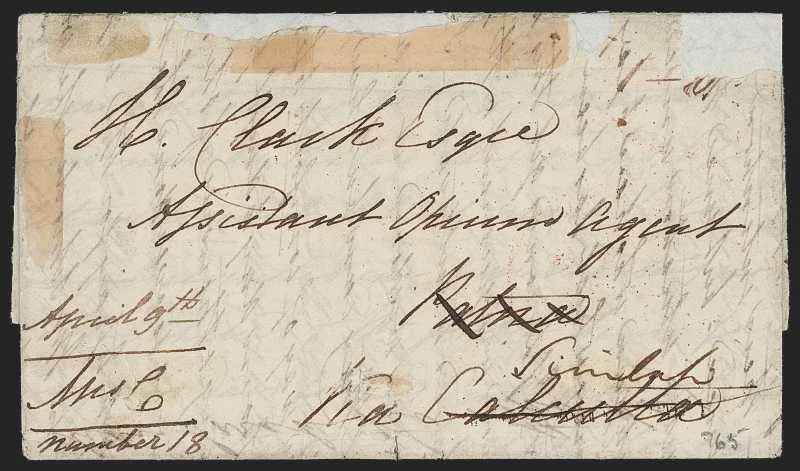 H. Clark Esqre
Assistant Opium Agent
Patna
via Calcutta
April 9th
number 18
765